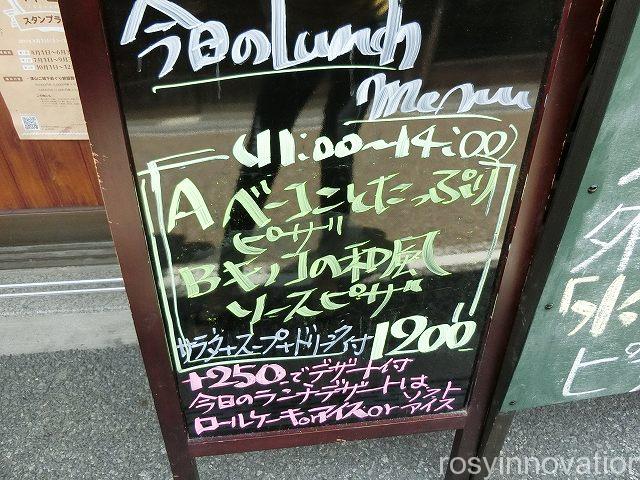 スタンプラ
今日のLunch
Menu
(11:00~14:00)
A ベーコンとたっぷり
ピザ
Bキノコの和風
ソースピザ
サラダ+スープ+ドリンク付 1200
+250-でデザート付
今日のランチデザートは
ロールケーキorアイスorソフト
アイス
rosyinnovation